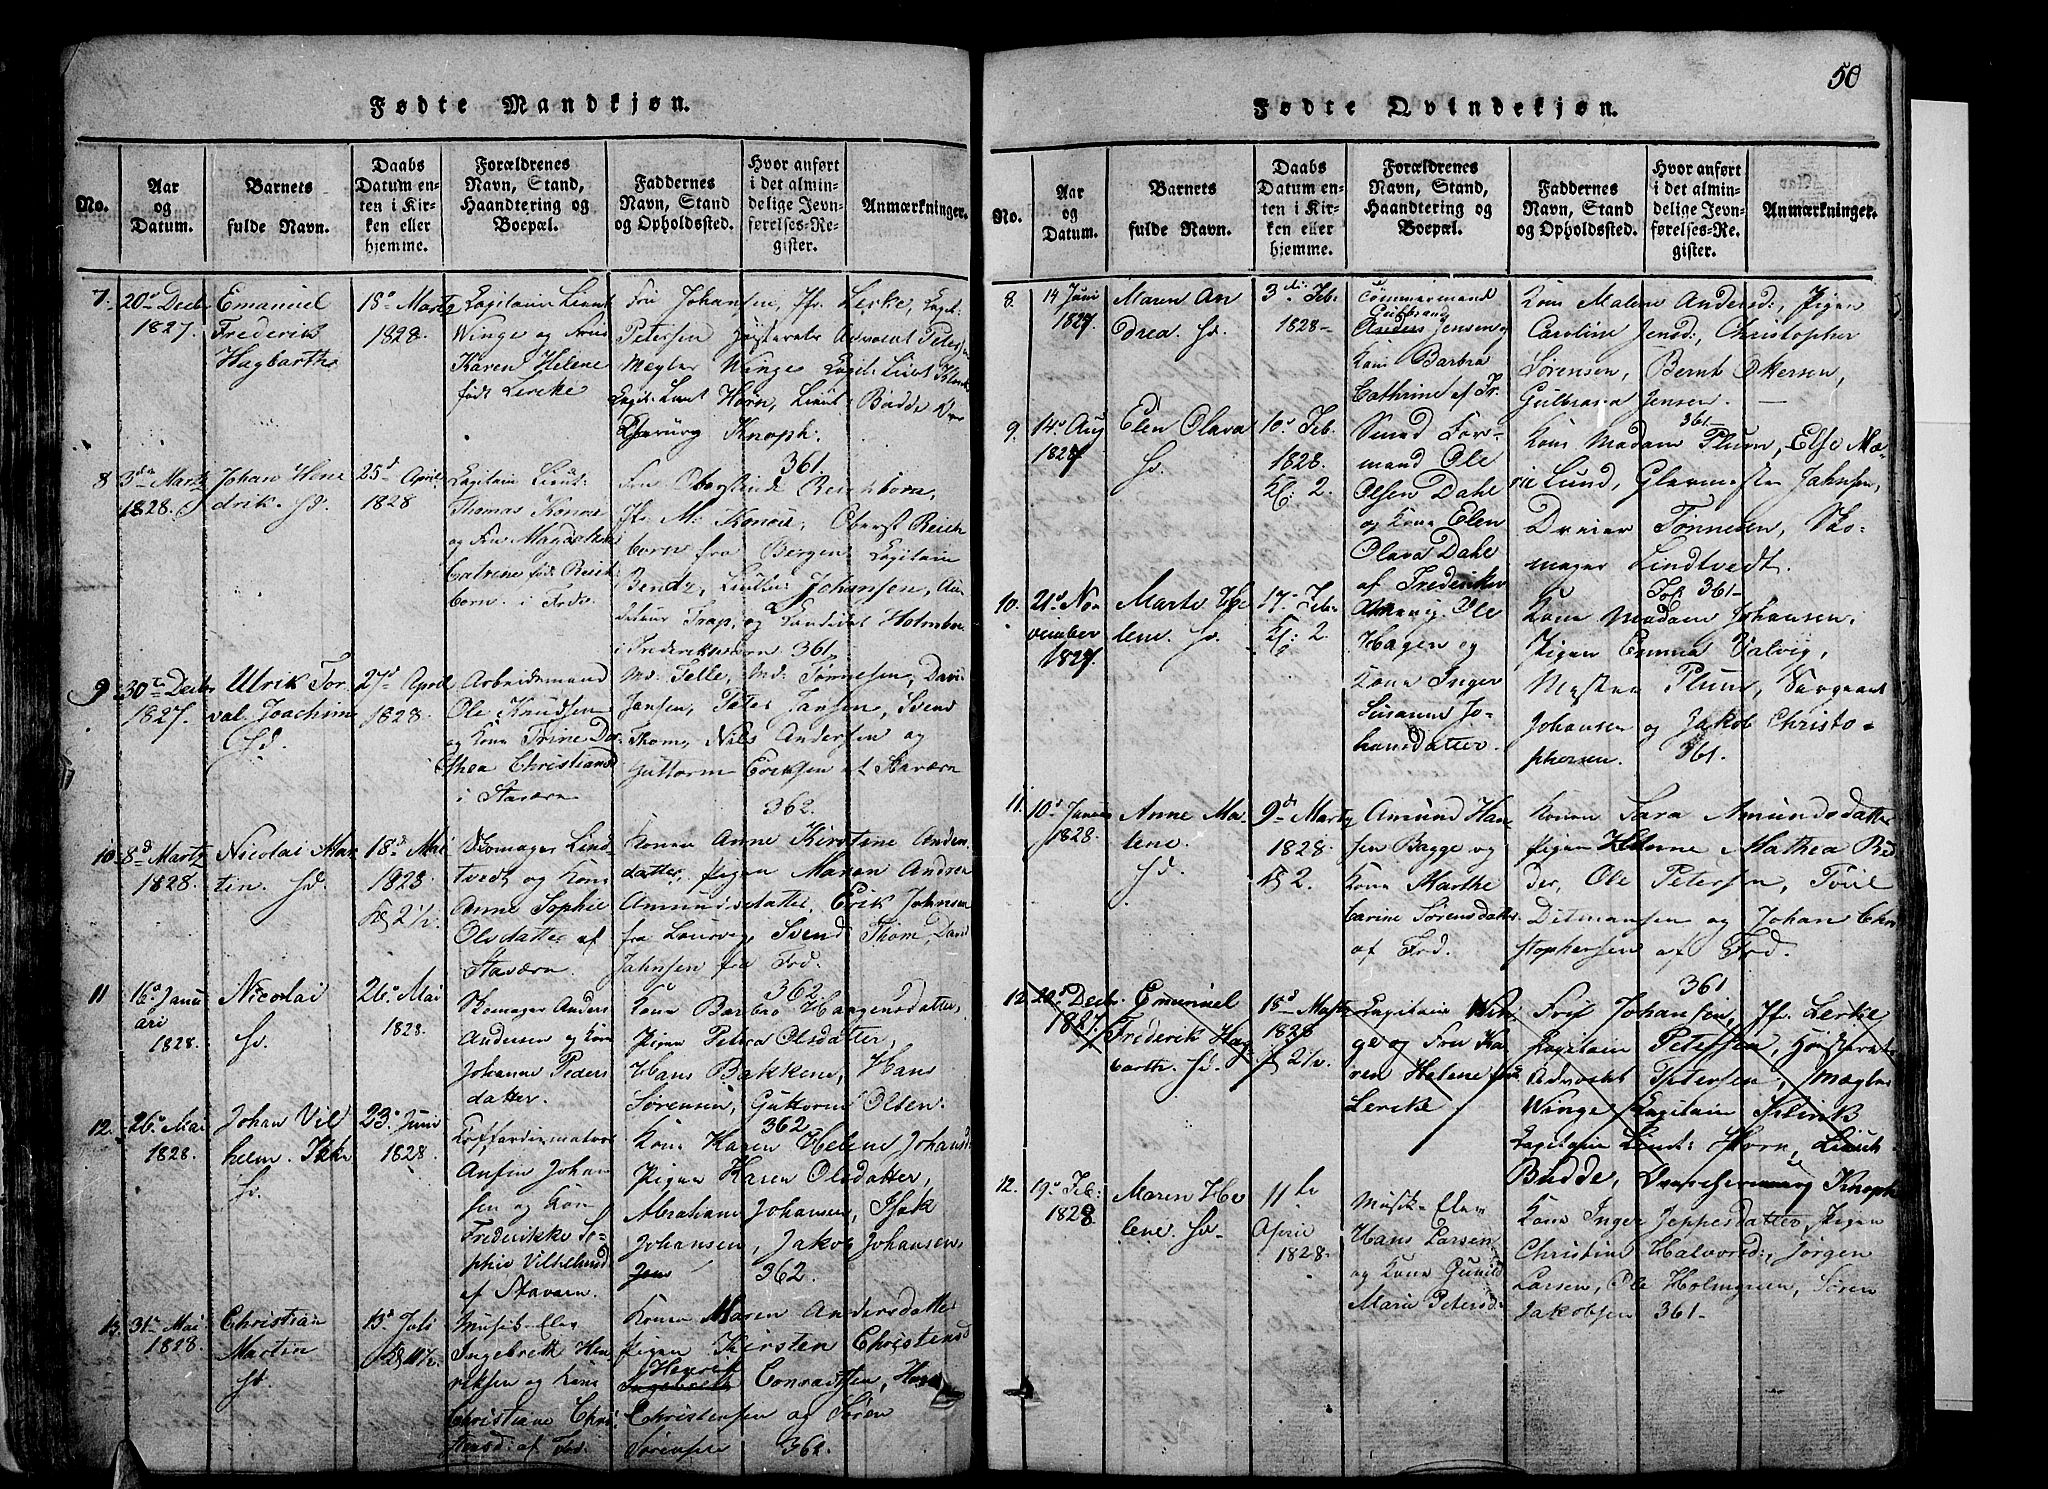 50
Fødte Mandkjøn.
No.
Aar
og
Datum.
Barnets
fulde Navn.
Daabs
Datum en-
ten i Kir-
ken eller
hjemme.
Forældrenes
Navn, Stand,
Haandtering og
Boepæl.
Faddernes
Navn, Stand
og Opholdssted.
Hvor anført
i det almin-
delige Jevn-
førelses-Re-
gister.
Anmærkninger.
7.
20de Decbr
1827.
Emanuel
Frederik
Hagbarth
18de Martz
1828.
Capitain Lieut
Winge og Frue
Karen Helene
født Lerche
Fru Johansen, Jfr. Lerke, Capit:
Petersen Høisterets Advocat Petersen
Megler Winge Capit:
Capit: Lieut Horn, Lieut. Budde
Knoph.
361.
8
3de Martz
1828.
Johan Hen
drik. Sd.
25d April
1828
Capitain Lieut:
Thomas Konow
og Fru Magdalene
Catrine født Reich
born. i Frds.
Fru Oberstinde Reichborn,
Jfr. M: Konow, Oberst Reich
born fra Bergen, Capitain
Bendz, Lieutn: Johansen, Au
diteur Trap, og Candidat Holmboe
i Frederiksværn 361.
9
30te Decbr
1827.
Ulrik Tor
val Joachim
Sd.
27d April
1828.
Arbeidsmand
Ole Knudsen
og Kone Trine Do
thea Christiansd
i Staværn
Md. Telle, Md. Tørnesen, David
Jansen, Peter Jansen, Svend
Thom, Nils Andersen og
Guttorm Eriksen af Staværn
362.
10
8d Martz
1828.
Nicolai Mar
tin. Sd.
18d Mai
1828
2½.
Skomager Lind
tvedt og Kone
Anne Sophie
Olsdatter af
Staværn.
Konen Anne Kirstine Anders
datter, Pigen Maren Andrea
Amundsdatter, Erik Johnsen
fra Laurvig, Svend Thom, David
Jahnsen fra Frd.
362
11
16de Janu
ari
1828.
Nicolai
Sd.
26de Mai
1828.
Skomager Anders
Andersen og Kone
Johanne Peders
datter.
Kone Barbro Haagensdatter,
Pigen Petra Olsdatter,
Hans Bakkene, Hans
Sørensen, Guttorm Olsen.
362
12.
26de Mai
1828.
Johan Vil
helm.
Sd.
23de Juni
1828.
Coffardimatros
Anfin Johan
sen og Kone
Frederikke So
phie Vilhelmsd
af Staværn.
Kone Karen Helene Johansd
Pigen Karen Olsdatter,
Abraham Johansen, Isak
Johansen, Jakob Johansen,
362.
13.
31te Mai
1828.
Christian
Martin
Sd.
13d Juli
Musik Elev
Ingebrett Hen
riksen og Kone
Christiane Chri
stensd: af Frd.
Konen Maren Andersdatter
Pigen Kirsten Christensd
Henrik
Ingebreth Conradsen, Hans
Christensen og Søren
Sørensen 362
Fødte Qvindekjøn.
No.
Aar
og
Datum.
Barnets
fulde Navn.
Daabs
Datum en-
ten i Kir-
ken eller
hjemme.
Forældrenes
Navn, Stand,
Haandtering og
Boepæl.
Faddernes
Navn, Stand
og Opholdssted.
Hvor anført
i det almin-
delige Jevn-
førelses-Re-
gister.
Anmærkninger.
8.
14 Juni
1827.
Maren An
drea. Sd.
3die Feb.
1828
Tømmermand
Gulbrand
Anders Jensen og
Kone Barbra
Cathrine af Fr.
Kone Malene Andersd:, Pigen
Caroline Jensd:, Christopher
Sørensen, Bernt Okersen,
Gulbrand Jensen.
361
9.
14de Aug
1827
Elen Olava
Sd.
10de Feb.
1828.
2.
Smed For-
mand Ole
Olsen Dahl
og Kone Elen
Olava Dahl
af Frederiksv
Kone Madam Plum, Else Ma-
rie Lund, Glarmester Jahnsen,
Dreier Tønnesen, Sko-
mager Lindtvedt.
361
10.
21de No
vember
1827.
Marte He
lene. Sd.
17de Feb.
2.
Ole
Hagen og
Kone Inger
Susanne Jo-
hansdatter.
Kone Madam Johansen,
Pigen Emma Valvig,
Plum, Sargeant
Johansen og Jakob Christo-
phersen. 361.
11.
10d Januar
1828.
Anne Ma-
lene.
Sd.
9de Martz
1828.
2.
Amund Han
sen Bagge og
Kone Marthe
Carine Sørensdatter
af Frd.
Konen Sara Amundsdatter
Pigen Mathea
Ole Petersen,
Ditmansen og Johan Chri
stophersen af Frd.
361
12.
20d Decbr.
1827.
Emanuel
Frederik Hag
barth. Sd.
18d Martz
1828
2½.
Capitain Win
ge og Fru Ka
ren Helene født
Lerche.
Frue Johansen, Jfr. Lerke
Capitain Petersen, Høisterets
Advocat Petersen, Megler
Winge Capitain
Capitain Lieut: Horn, Lieut.
Budde, Knoph
12.
19de Feb:
1828
Maren He
lene. Sd.
11te
April
1828.
Musik-Elev
Hans Larsen
og Kone Gunild
Marie Petersd
Kone Inger Jeppesdatter, Pigen
Christine Halvorsd:, Jørgen
Larsen, Ole Holmgren, Søren
Jakobsen 361.